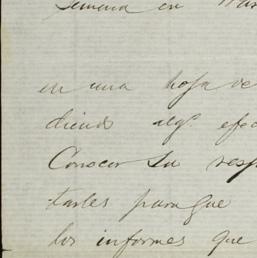 Semana en
en una hoja de
diendo algs. efec
Conocer su resp
tarles para que
los informes que